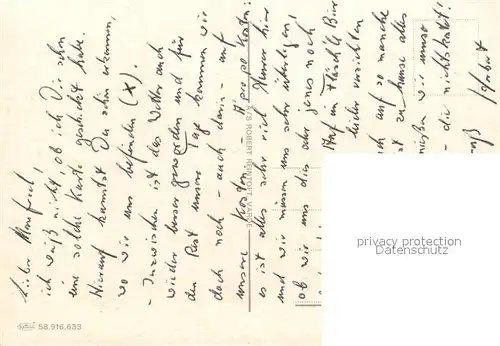 Lieber Manfred!
ich weiß nicht, ob ich Dir schon
eine solche Karte geschickt habe.
Hierauf kannst Du schön erkennen,
wo wir uns befinden (x).
- Inzwischen ist das Wetter auch
wieder besser geworden und für
den Rest unserer Tage kommen wir
doch noch - auch darin - auf
unsere Kosten. Apropo Kosten:
es ist alles sehr viel teurer hier
und wir müssen uns sehr überlegen,
ob wir uns dies oder jenes noch
Bier
leider verzichten
auch auf so manche
zu hause alles
wir umso
- die nichts kostet!
AVS ROBERT REINTORF GARDE
58.916.633
privacy protection
Datenschutz